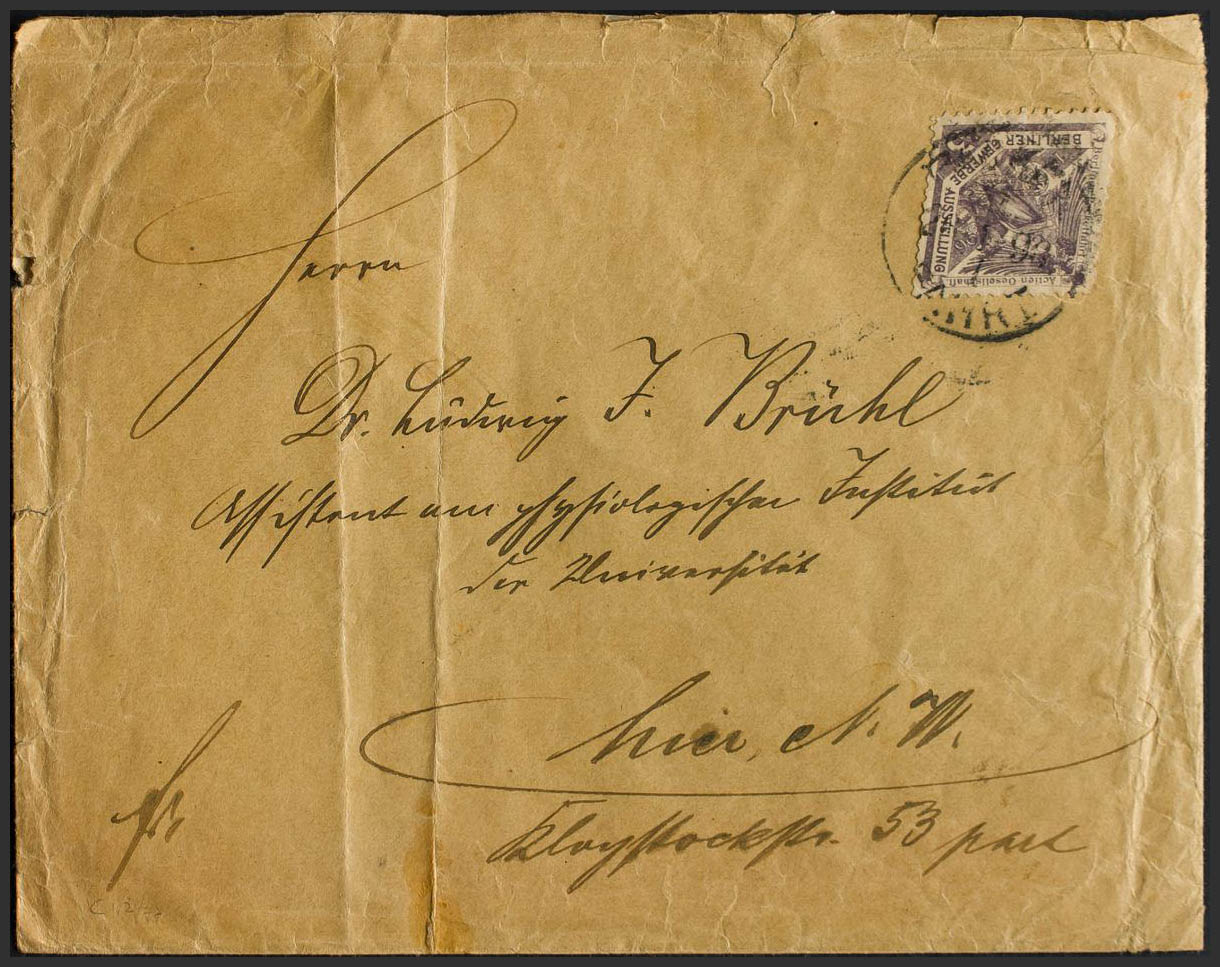 BERLINER
GEWERBE AUSSTELLUNG
Actien-Gesellschaft
Herrn
Dr. Ludwig J. Brühl
Assistent am physiologischen Institut
der Universität
hier, N. W.
Fr.
Klopstockstr. 53 part